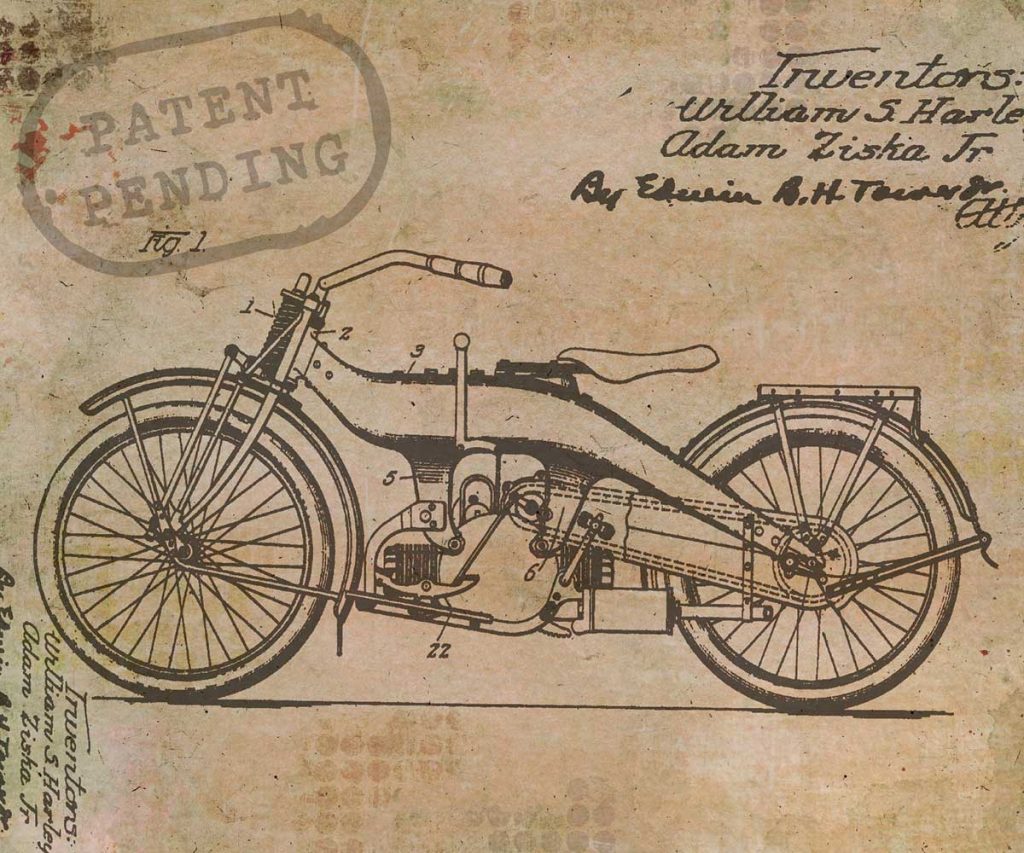 PATENT
PENDING
Fig. 1.
Inventors:
William S. Harle
Adam Ziska Jr
By Edwin B. H. Tower Jr.
1
2
3
5
6
22
Inventors:
William S. Harley
Adam Ziska Jr